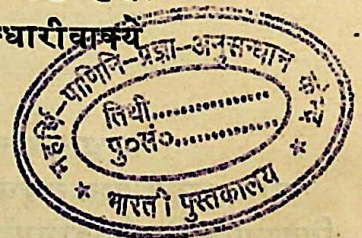 धारीवाक्ये
महर्षि-पाणिनि-प्रज्ञा-अनुसन्धान केन्द्र
तिथी..................
पु०सं०..................
* भारती पुस्तकालय *